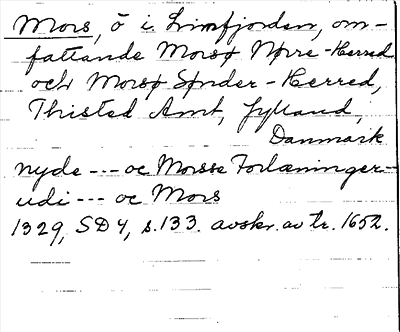 Mors, ö i Limfjorden, om-
fattande Morsø Nørre-Herred
och Morsø Sønder-Herred,
Thisted Amt, Jylland,
Danmark
nyde --- oc Morsse Forlæninger-
udi --- oc Mors
1329, SD 4, s. 133. avskr. av tr. 1652.